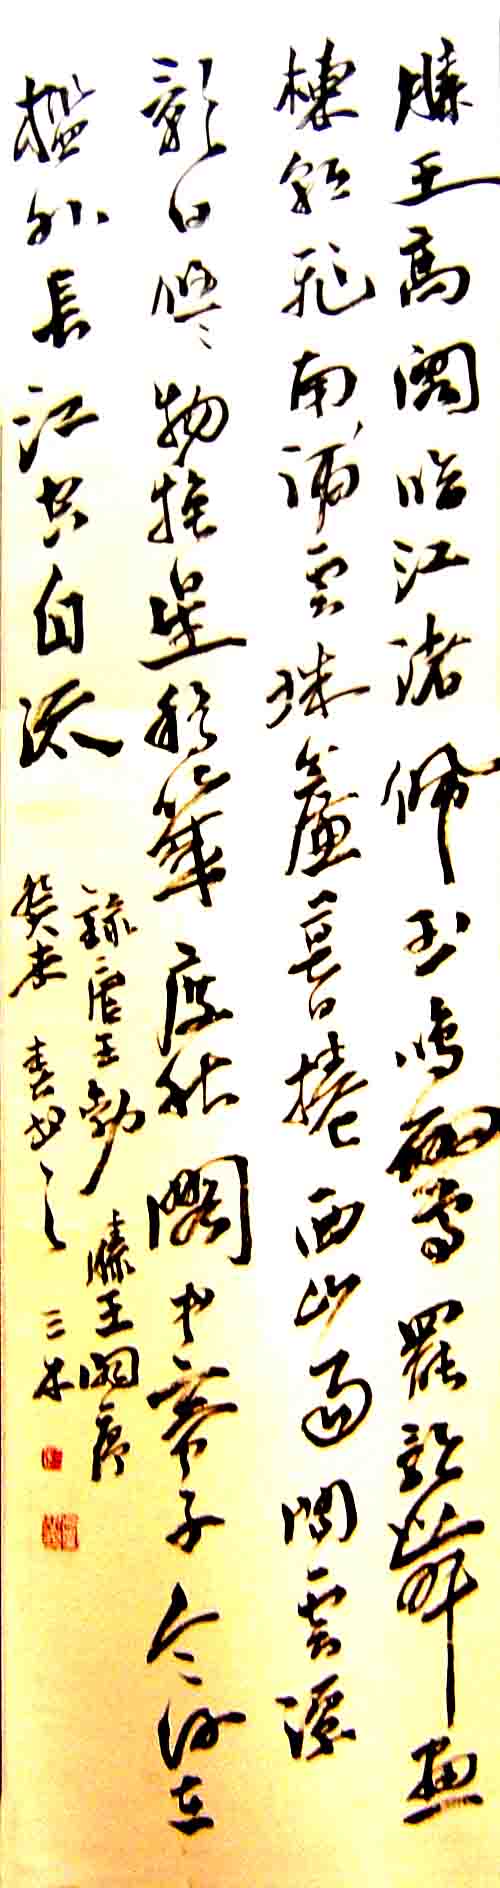 滕王高閣臨江渚佩玉鳴鸞罷歌舞畫
棟朝飛南浦雲珠簾暮捲西山雨閑雲潭
影日悠悠物換星移幾度秋閣中帝子今何在
檻外長江空自流
錄唐王勃 滕王閣序
癸未 春书之 三木